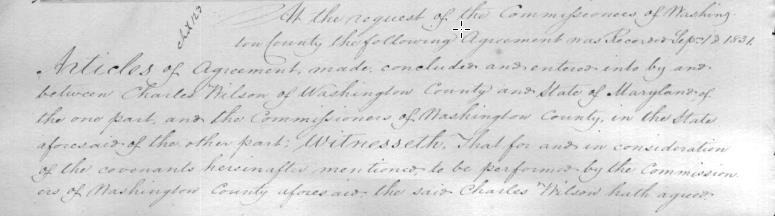 At the request of the Commissioners of Washing
ton County the following Agreement was Recorded Sept 1st 1831.
Articles of Agreement, made, concluded and entered into by and
between Charles Wilson of Washington County and State of Maryland of
the one part, and the Commissioners of Washington County, in the State
aforesaid of the other part; Witnesseth, That for and in consideration
of the covenants hereinafter mentioned, to be performed by the Commission
ers of Washington County aforesaid, the said Charles Wilson hath agreed